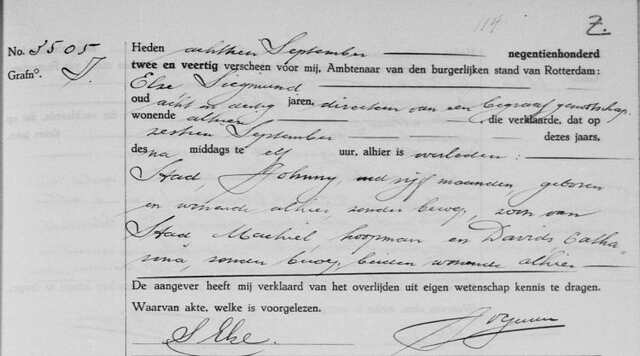 114
Z.
No. 3505
Grafno. J.
Heden achttien September negentienhonderd
twee en veertig verscheen vóór mij, Ambtenaar van den burgerlijken stand van Rotterdam:
Else Siegmund
oud acht en dertig jaren, directeur van een begrafgenootschap
wonende alhier die verklaarde, dat op
zestien September dezes jaars,
des na middags te elf uur, alhier is overleden:
Stad, Johnny, oud vijf maanden geboren
en wonende alhier, zonder beroep, zoon van
Stad Machiel, koopman en Davids Catha-
rina, zonder beroep, beiden wonende alhier
De aangever heeft mij verklaard van het overlijden uit eigen wetenschap kennis te dragen.
Waarvan akte, welke is voorgelezen.
S Else